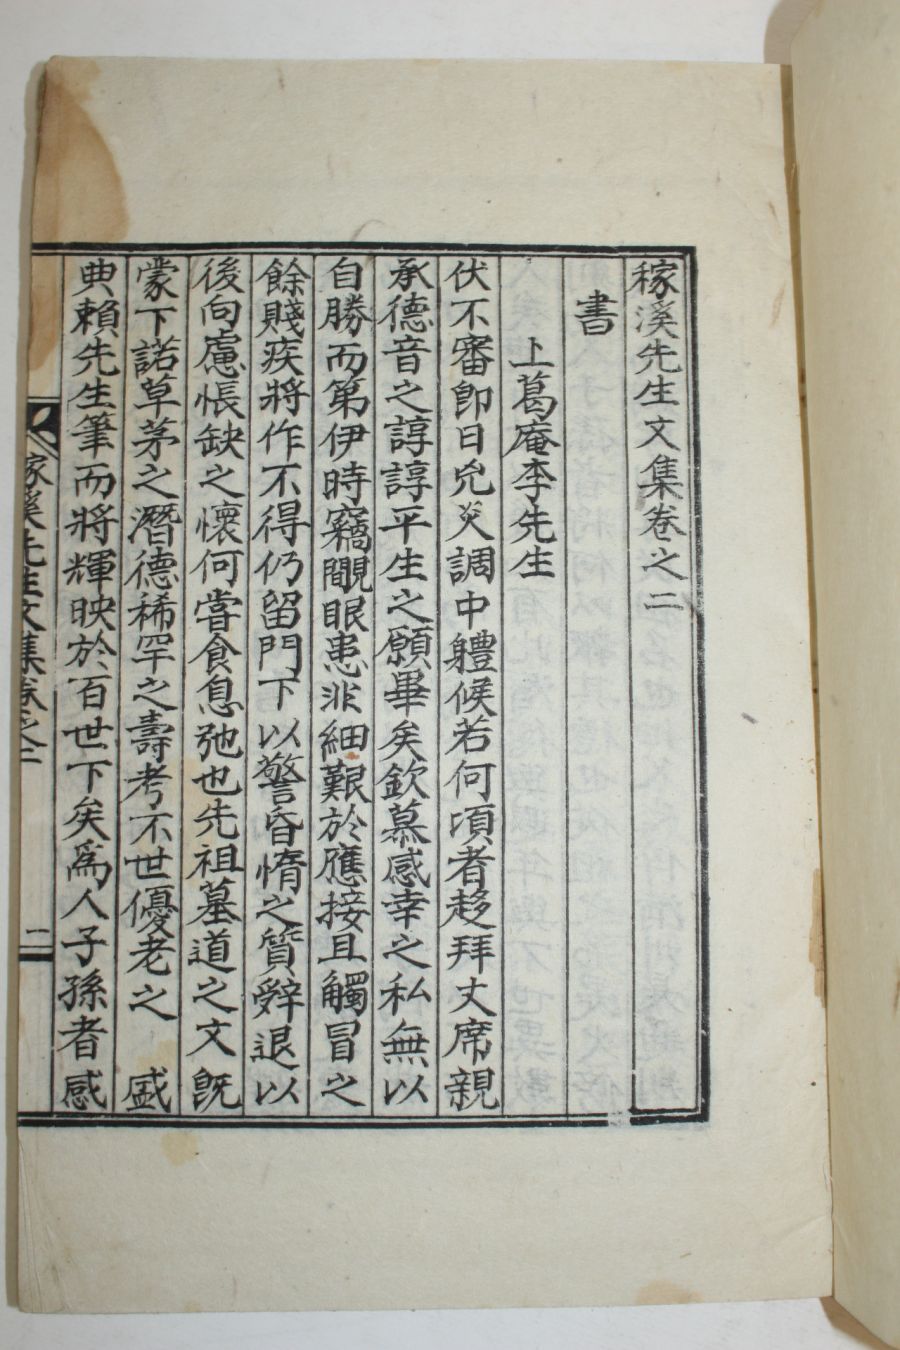 稼溪先生文集卷之二
書
上葛庵李先生
伏不審卽日兊炎調中軆候若何頃者趍拜丈席親
承德音之諄諄平生之願畢矣欽慕感幸之私無以
自勝而第伊時竊覵眼患非細艱於應接且觸冒之
餘賤疾將作不得仍留門下以警昏惰之質辭退以
後向慮悵缺之懷何嘗食息弛也先祖墓道之文旣
蒙下諾草茅之潛德稀罕之壽考不世優老之 盛
典賴先生筆而將輝映於百世下矣爲人子孫者感
稼溪先生文集卷之二
二